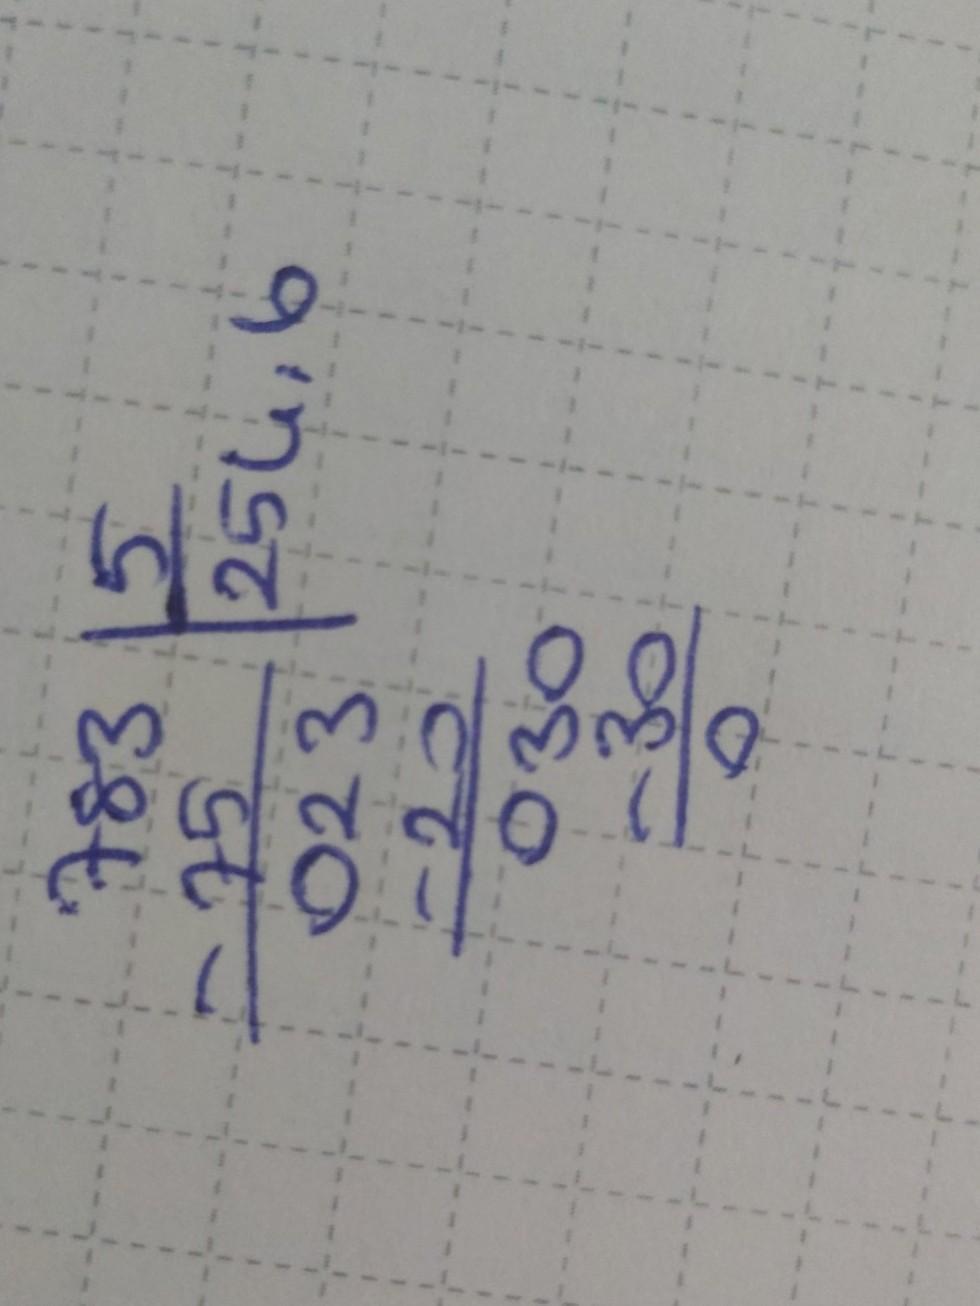 783 5
- 75 254,6
023
- 20
030
- 30
0